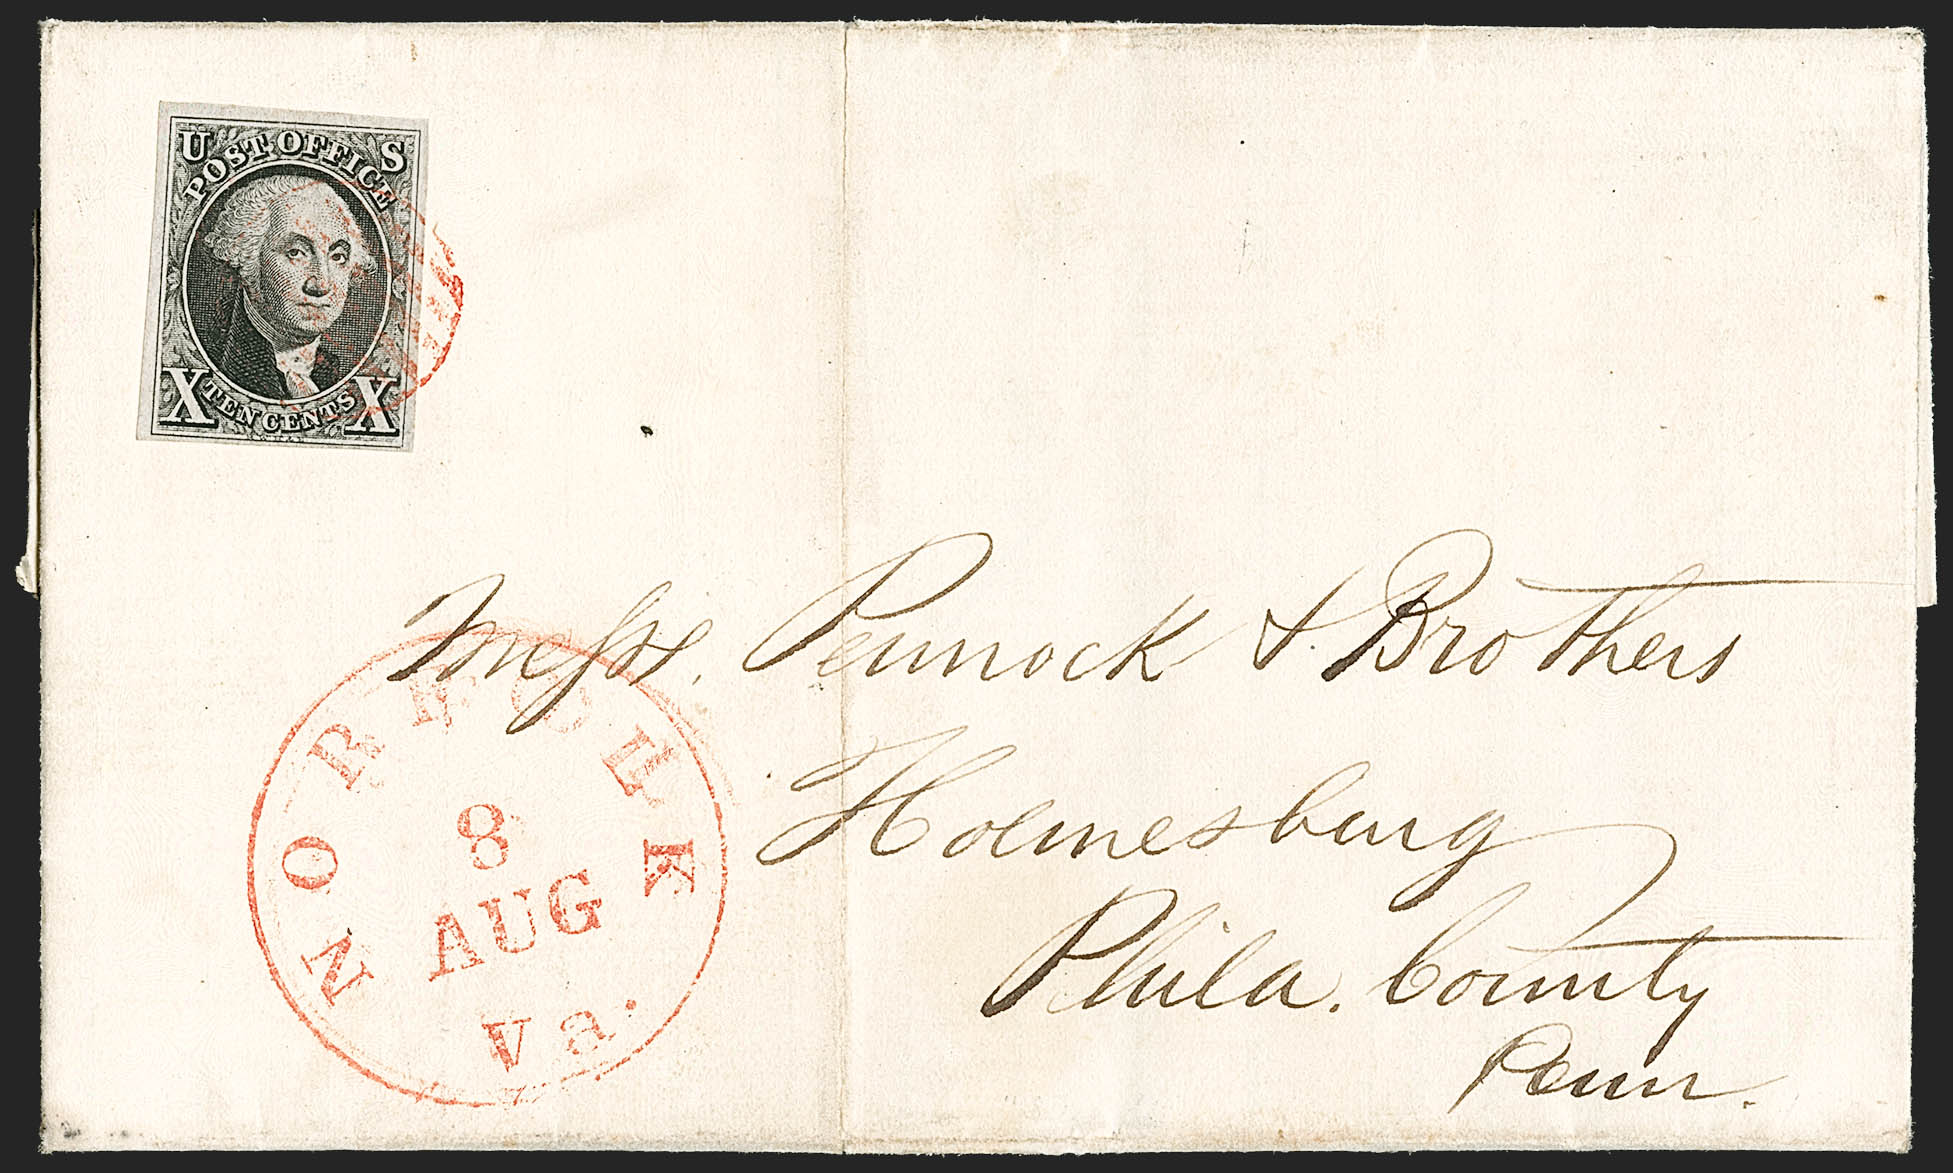 U S
POST OFFICE
X TEN CENTS X
Messrs. Pennock & Brothers
Holmesburg
Phila. County
Penn.
NORFOLK
8
AUG
Va.